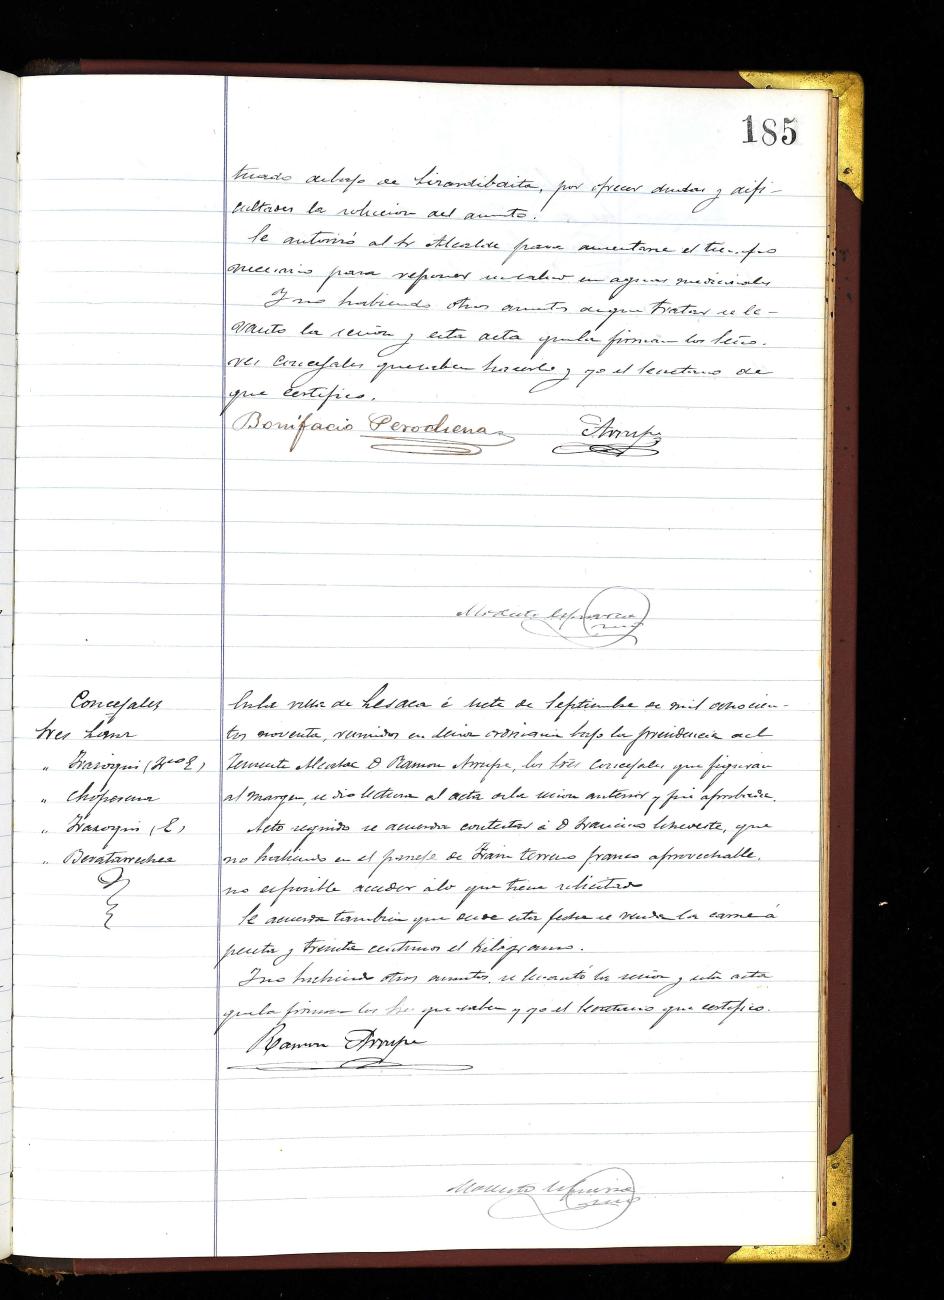 185
tuado debajo de Lizardibaita, por ofrecer dudas y difi-
cultades la solucion del asunto.
Se autorizó al Sr Alcalde para ausentarse el tiempo
necesario para reponer su salud en aguas medicinales
Y no habiendo otros asuntos de que tratar se le-
vanto la sesion y esta acta que la firman los Seño-
res Concejales que saben hacerlo y yo el Secretario de
que certifico.
Bonifacio Perochena Arrupe
Modesto
Concejales
Sres
" Irazoqui (Fco E)
" Choperena
" Irazoqui (E)
" Beratarrechea
En la villa de Lesaca á siete de Septiembre de mil ochocien-
tos noventa, reunidos en sesion ordinaria bajo la presidencia del
Teniente Alcalde D Ramon Arrupe, los Sres Concejales que figuran
al margen, se dio lectura al acta de la sesion anterior y fué aprobada.
Acto seguido se acuerda contestar á D Francisco Echeveste, que
no habiendo en el paraje de terreno franco aprovechable,
no es posible acceder á lo que tiene solicitado
Se acuerda tambien que desde esta fecha se venda la carne á
peseta y treinta centimos el kilogramo.
Y no habiendo otros asuntos, se levantó la sesion y esta acta
que la firman los Sres que saben y yo el Secretario que certifico.
Ramon Arrupe
Modesto